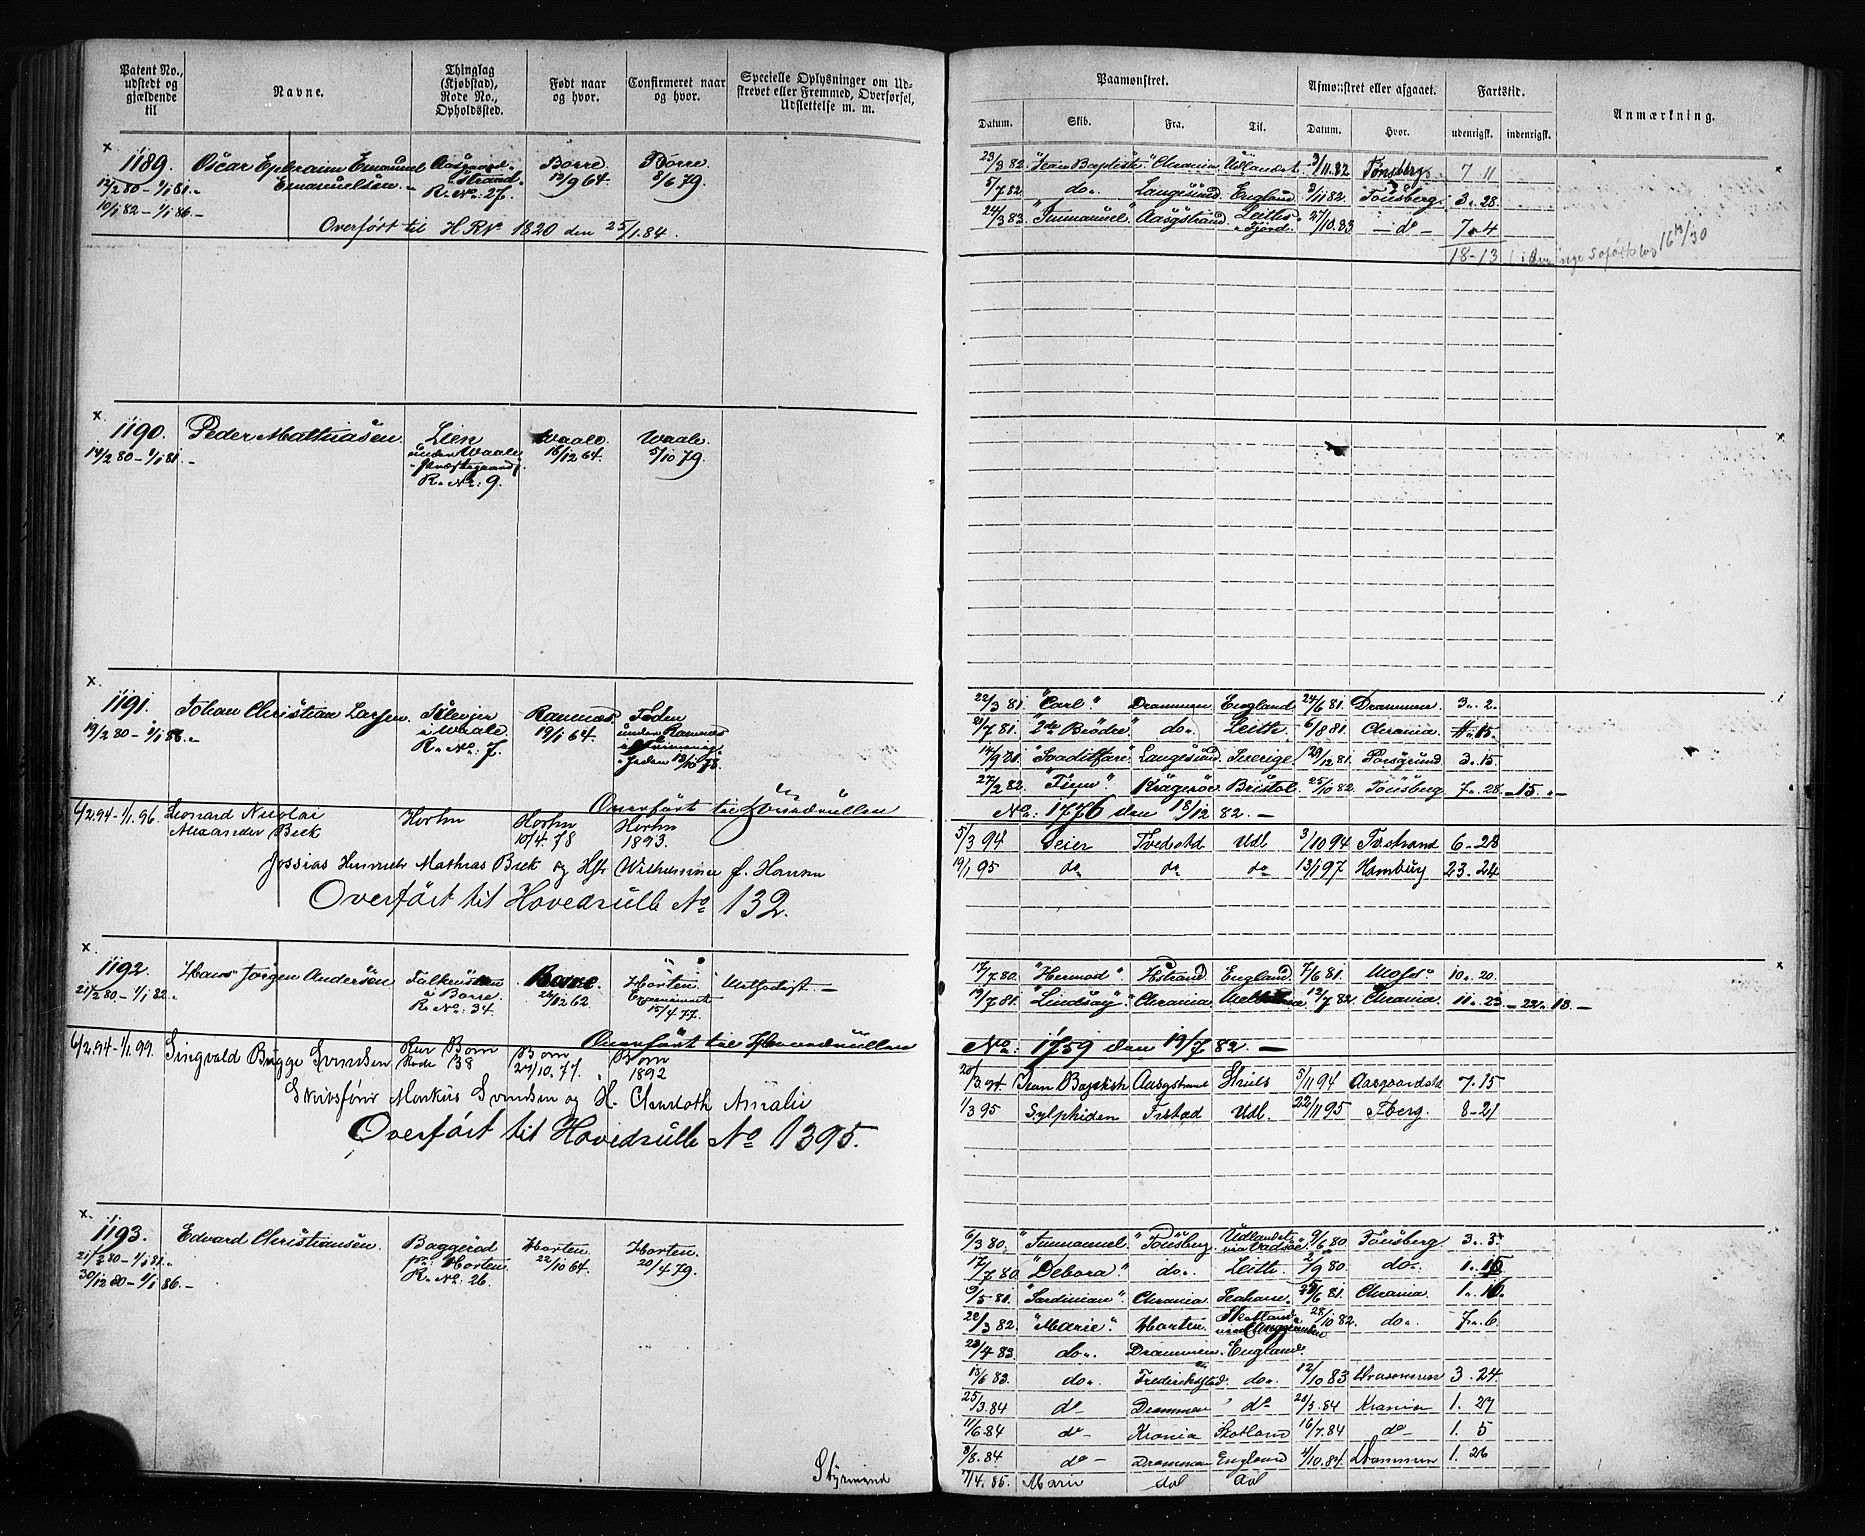 Patent No., udstedt og gjældende til
Navne.
Thinglag (Kjøbstad), Rode No., Opholdssted.
Født naar og hvor.
Confirmeret naar og hvor.
Specielle Oplysninger om Udstrevet eller Fremmed, Overførsel, Udslettelse m. m.
x
1189. Oscar Ephraim Emanuel Aasgaard- Borre Borre
Emanuelsen. strand. 13/9 64. 8/6 79.
12/2 80 - 1/1 81. R. No: 27.
10/1 82 - 1/1 86.
Overført til H R No 1820 den 25/1 84.
x.
1190. Peder Mathiasen. Lien Waale. Waale.
14/2 80 - 1/1 81. under Waale 16/12 64. 5/10 79.
Præstegaard
R. No: 9.
x.
1191. Johan Christian Larsen. Klevjer Ramnæs.
19/2 80 - 1/1 86. i Waale 19/1 64. under Ramnæs
R. No: 7.
Overført til Hovedrullen
6/2.94 - 1/1.96 Leonard Nicolai Horten Horten Horten
Alexander Bick 10/4.78 1893.
Jossias Hinrich Mathias Bick og Hstr Wilhelmine f. Hansen
Overført til Hovedrulle No 132.
x
1192. Hans Jørgen Andersen Falkensten Borre Horten Methodist.
21/2 80 - 1/1 82. i Borre. 26/12 62 15/4 77.
R. No: 34.
Overført til Hovedrullen
6/2.94 - 1/1.99. Singvald Brygge Svendsen Borre Borre
Rode 38 24/10.77. 1892
Skibsfører Markus Svendsen og H. Charloth Amalie
Overført til Hovedrulle No 1395.
x.
1193. Edvard Christiansen. Baggerød Horten Horten.
21/2 80 - 1/1 81. pr. Horten. 22/10 64. 20/4 79.
30/12 80 - 1/1 86. R. No: 26.
Styrmand
Paamønstret.
Afmønstret eller afgaaet.
Fartstid.
Anmærkning.
Datum. Skib. Fra. Til. Datum. Hvor. udenrigsk. indenrigsk.
23/3 82. "Jean Baptiste" Chrania Udlandet 3/11.82 Tønsberg 7 11
5/7 82. do. Langesund England 3/11 82 Tønsberg 3. 28.
24/3 83 "Immanuel" Aasgstrand. Leiths Fjord. 27/10.83 - do - 7. 4
18-13
22/3 81. "Carl" Drammen England 24/6 81. Drammen. 3. 2.
21/7 81. "2de Brødre" do. Leith 6/8 81. Chrania.
Langesund Sverige 29/12 81. Porsgrund 3. 15.
27/2 82. Kragerøe Bristol. 25/10 82 Tønsberg 7. 28. - 15. -
No: 1776 den 18/12 82. -
5/3 94 Seier Tvedestd Udl 3/10 94 Tvstrand 6-28
19/1 95 do do do 13/1 97 Hamburg 23. 24
17/7 80. "Hermod" Hstrand England. 7/6 81. Moss. 10. 20.
19/7 81. "Lindsay". Chrania 12/7 82. Chrania. 11. 23. - 22. 13. -
No: 1759 den 19/7 82. -
20/3.94. Jean Baptist Aasgstrand Shiels 5/11 94 Aasgaardstd 7. 15
1/3 95 Sylphiden Frstad Udl. 22/11 95 Tberg. 8-21
6/3 80. "Immanuel." Tønsberg Udlandet via Vadsøe. 9/6 80 Tønsberg 3. 3.
17/7 80. "Debora". do. Leith. 2/9 80 do.
9/5 81. "Sardinian". Chrania Seaham. 25/6 81. Chrania. 1. 16.
22/3 82. "Marie". Horten. 28/10 82. do. 7. 6.
23/4 83. do. Drammen. England.
18/6 83. do. Frederikstad. do. 12/10 83 Drammen 3. 24.
25/3.84 do - Drammen do 21/5.84 Krania 1. 27
11/6.84 do - Krania Skotland 16/7.84 do - 1. 5
9/8.84 do - Drammen England 4/10.84 Drammen 1. 26
7/4.85. Marie do do